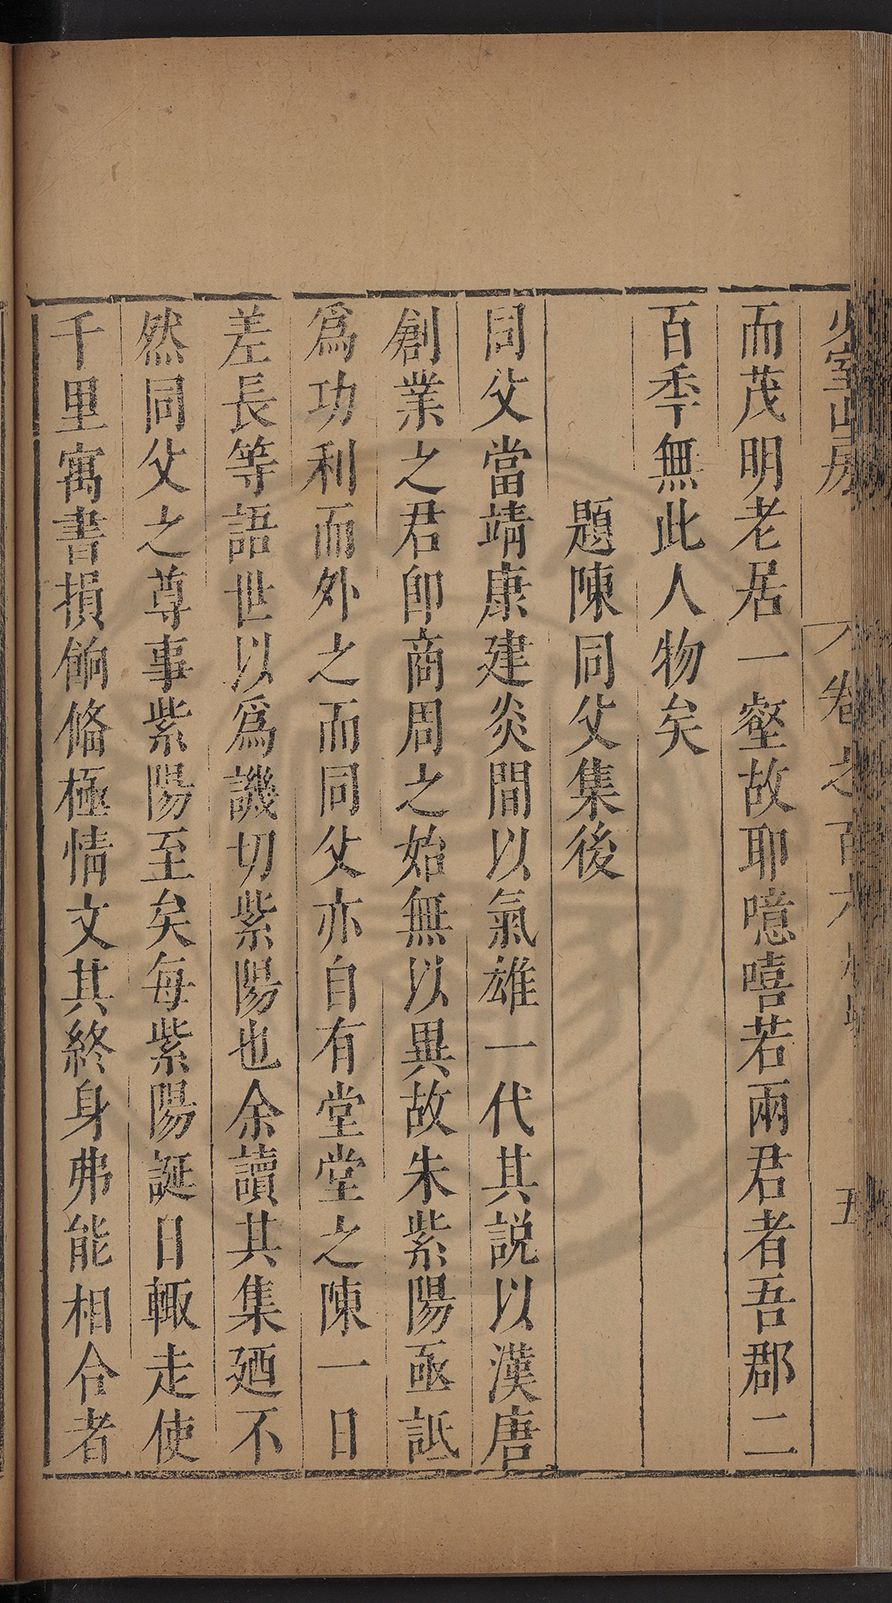 少室山房
卷之百六
五
而茂明老居一壑故耶噫嘻若兩君者吾郡二
百秊無此人物矣
題陳同父集後
同父當靖康建炎間以氣雄一代其説以漢唐
創業之君卽商周之始無以異故朱紫陽亟詆
爲功利而外之而同父亦自有堂堂之陳一日
差長等語世以爲譏切紫陽也余讀其集廼不
然同父之尊事紫陽至矣每紫陽誕日輙走使
千里寓書損餉脩極情文其終身弗能相合者